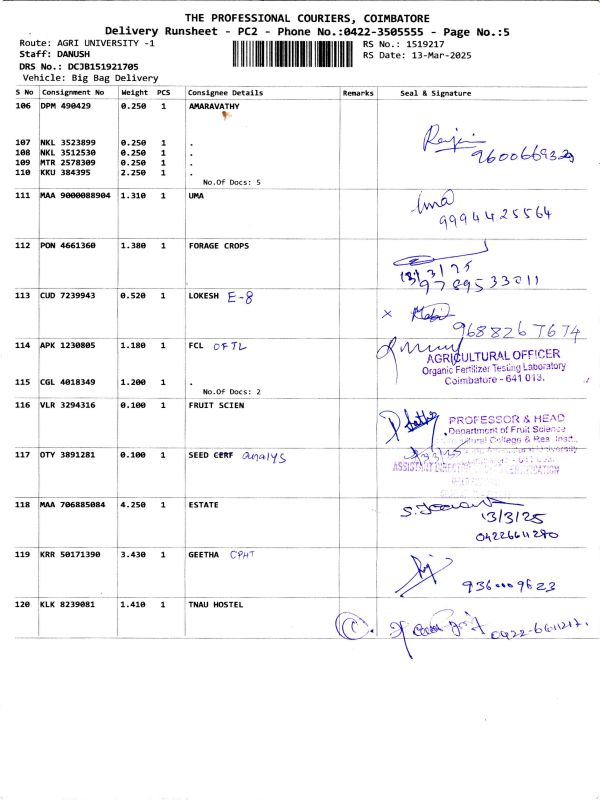 THE PROFESSIONAL COURIERS, COIMBATORE
Delivery Runsheet - PC2 - Phone No.:0422-3505555 - Page No.:5
Route: AGRI UNIVERSITY -1 RS No.: 1519217
Staff: DANUSH RS Date: 13-Mar-2025
DRS No.: DCJB151921705
Vehicle: Big Bag Delivery
S No Consignment No Weight PCS Consignee Details Remarks Seal & Signature
106 DPM 490429 0.250 1 AMARAVATHY
107 NKL 3523899 0.250 1 .
108 NKL 3512530 0.250 1 .
109 MTR 2578309 0.250 1 .
110 KKU 384395 2.250 1 .
No.Of Docs: 5
111 MAA 9000088904 1.310 1 UMA Uma
9994425564
112 PON 4661360 1.380 1 FORAGE CROPS
13/3/25
9789533011
113 CUD 7239943 0.520 1 LOKESH E-8
x
9688267674
114 APK 1230805 1.180 1 FCL OFTL
AGRICULTURAL OFFICER
Organic Fertilizer Testing Laboratory
Coimbatore - 641 013.
115 CGL 4018349 1.200 1 .
No.Of Docs: 2
116 VLR 3294316 0.100 1 FRUIT SCIEN
PROFESSOR & HEAD
Department of Fruit Science
117 OTY 3891281 0.100 1 SEED CERF analys
118 MAA 706885084 4.250 1 ESTATE
13/3/25
04226611270
119 KRR 50171390 3.430 1 GEETHA CPHT
9360009623
120 KLK 8239081 1.410 1 TNAU HOSTEL
0422-6611217.